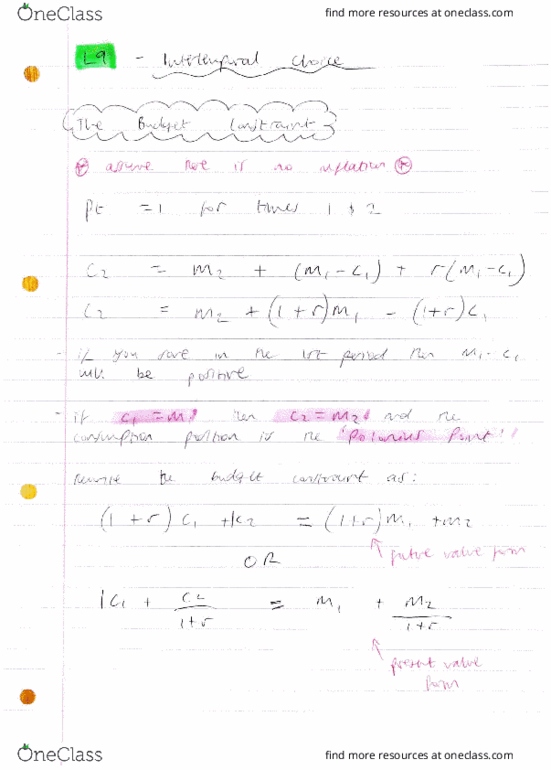 OneClass
find more resources at oneclass.com
L9 - Intertemporal Choice
The Budget Constraint
* assume there is no inflation *
Pt = 1 for times 1 & 2
C2 = m2 + (m1 - c1) + r(m1 - c1)
C2 = m2 + (1 + r)m1 - (1+r)c1
- if you save in the 1st period then m1 - c1
will be positive
- if c1 = m1 then c2 = m2 and the
consumption position is the 'Polonius Point'
rewrite the budget constraint as:
(1 + r) c1 + 1c2 = (1+r)m1 + m2
future value form
OR
1c1 + c2/1+r = m1 + m2/1+r
present value
form
OneClass
find more resources at oneclass.com